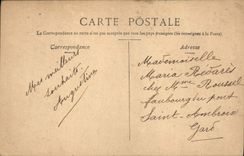 CARTE POSTALE
La Correspondance au recto n'est pas acceptée par tous les pays étrangers (Se renseigner à la Poste)
Correspondance
Adresse
Mes meilleurs
souhaits
Augustine
Mademoiselle
Maria
chez Mme Roussel
faubourg du pont
Saint Ambroix
Gard